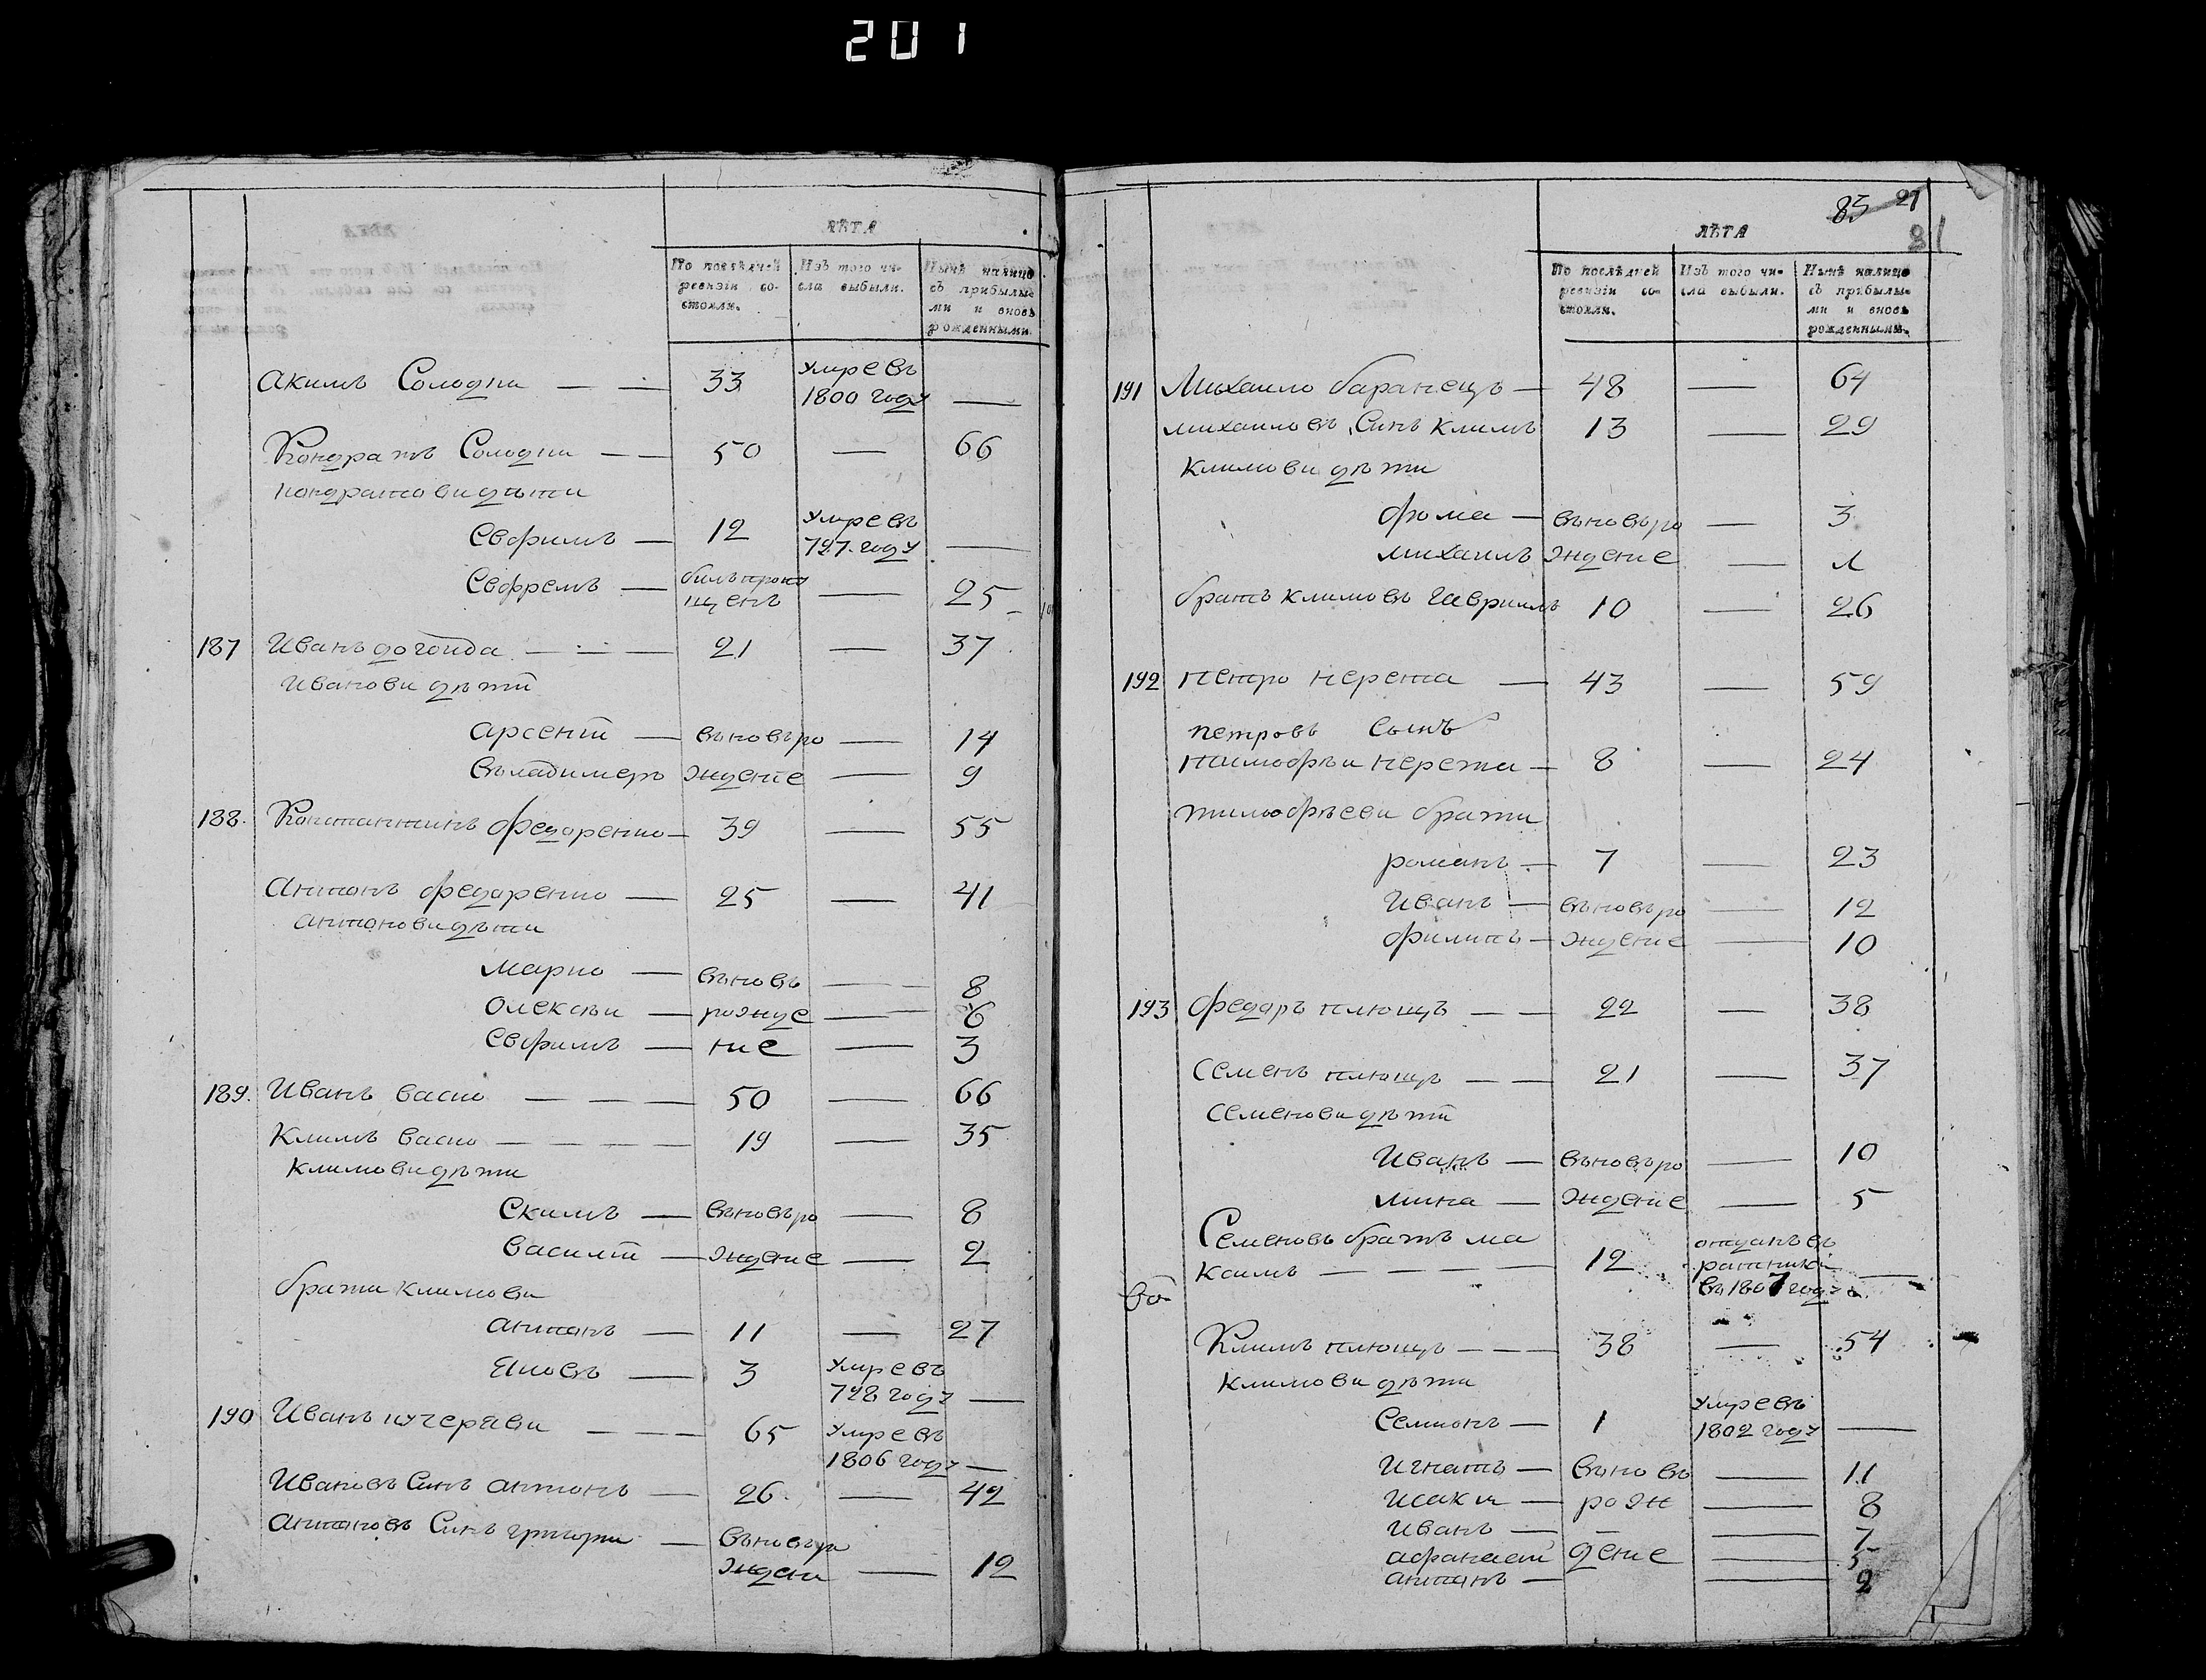 201
ЛѢТА
По послѣдней ревизіи со-
стояли.
Изъ того чи-
сла выбыли.
Нынѣ налицо
съ прибылы-
ми и вновь
рожденными.
акимъ Солодки — — 33 умре въ
1800 году —
Кондратъ Солодки — — 50 — 66
кондратови дѣти
Евфимъ — 12 умре въ
797. году —
Евфремъ — билъ пропу
щенъ — 25
187 Иванъ догоида — — — 21 — 37
Иванови дѣти
арсентй — въновъро — 14
въладимеръ ждение — 9
188. Константинъ федоренко — 39 — 55
антонъ федоренко — 25 — 41
антонови дѣти
марко — въновъ — 8
олексѣи — рожде — 6
Евфимъ — ние — 3
189. Иванъ васко — — — 50 — 66
Климъ васко — — — — 19 — 35
Климови дѣти
Екимъ — въновъро — 8
василій — ждение — 2
брати климови
антонъ — 11 — 27
Яковъ — 3 умре въ
798 году —
190 Иванъ кучеряви — — — 65 умре въ
1806 году —
Ивановъ Синъ антонъ — 26. — 42
антоновъ Синъ григори — въновъро
ждени — 12
85 21
81
ЛѢТА
По послѣдней
ревизіи со-
стояли.
Изъ того чи-
сла выбыли.
Нынѣ налицо
съ прибылы-
ми и вновь
рожденными.
191 Михаило баранецъ — 48 — 64
михаиловъ Синъ климъ 13 — 29
климови дѣти
фома — въновъро — 3
михаилъ ждение — 1
братъ климовъ гавриилъ 10 — 26
192 петро черета — 43 — 59
петровъ сынъ
тимофѣи черета — 8 — 24
тимофѣеви брати
романъ — 7 — 23
Иванъ — въновъро — 12
филипъ — ждение — 10
193 федоръ плющъ — — 22 — 38
семенъ плющъ — — 21 — 37
семенови дѣти
Иванъ — въновъро — 10
мина — ждение — 5
Семеновъ братъ ма
ксимъ — — — — 12 отданъ въ
ратники
въ 1807 году —
Климъ плющъ — — — 38 — 54
климови дѣти
Семионъ — 1 умре въ
1802 году —
игнатъ — въновъ — 11
исаки — рож — 8
иванъ — — — 7
афанасй дение — 5
антонъ — — 2